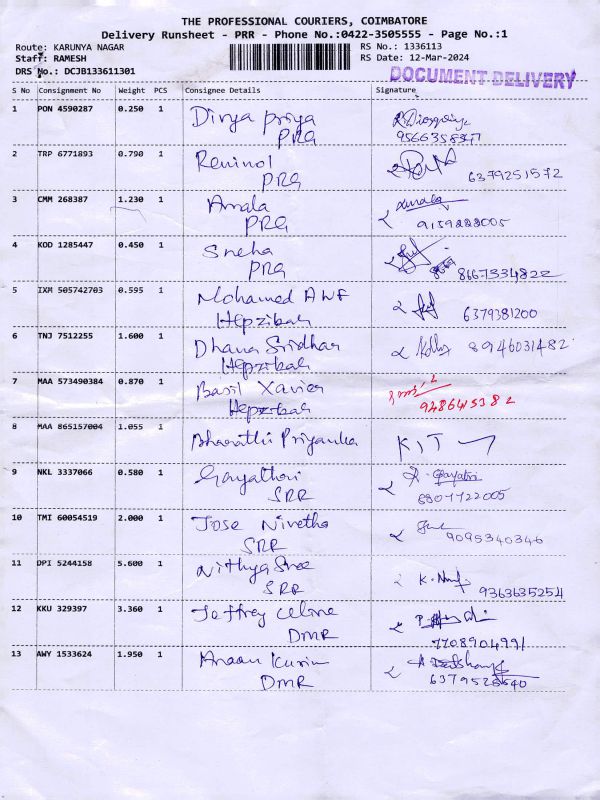 THE PROFESSIONAL COURIERS, COIMBATORE
Delivery Runsheet - PRR - Phone No.:0422-3505555 - Page No.:1
Route: KARUNYA NAGAR RS No.: 1336113
Staff: RAMESH RS Date: 12-Mar-2024
DRS No.: DCJB133611301 DOCUMENT DELIVERY
S No Consignment No Weight PCS Consignee Details Signature
1 PON 4590287 0.250 1 Divya priya
PRG
2 TRP 6771893 0.790 1
PRG 6379251572
3 CMM 268387 1.230 1 Amala
PRG 9159222005
4 KOD 1285447 0.450 1 Sneha
PRG 8667334822
5 IXM 505742703 0.595 1 Mohamed
Hepzibah 6379381200
6 TNJ 7512255 1.600 1 Dhana Sridhar 8946031482
Hepzibah
7 MAA 573490384 0.870 1 Basil Xavier
Hepzibah
8 MAA 865157004 1.055 1 Bharathi Priyanka KIT
9 NKL 3337066 0.580 1 Gayathri Gayatri
SRR
10 TMI 60054519 2.000 1 Jose Nivetha
SRR 9095340346
11 DPI 5244158 5.600 1 Nithya Shree
SRR 9363635254
12 KKU 329397 3.360 1 Jeffrey Celine
DMR 7708904991
13 AWY 1533624 1.950 1
DMR